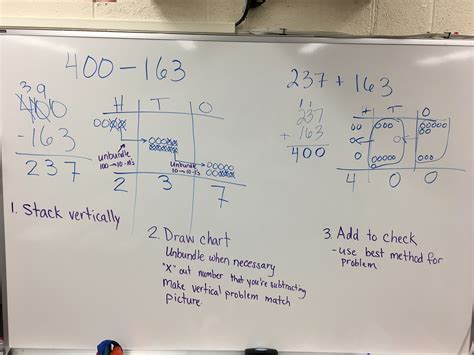 400 - 163
3 9
400
- 163
237
H T O
unbundle
100 → 10 - 10's
unbundle
10 → 10 - 1's
2 3 7
1. Stack vertically
2. Draw chart
Unbundle when necessary
"X" out number that you're subtracting
make vertical problem match
picture.
237 + 163
1 1
237
+ 163
400
H T O
4 0 0
3. Add to check
- use best method for
problem